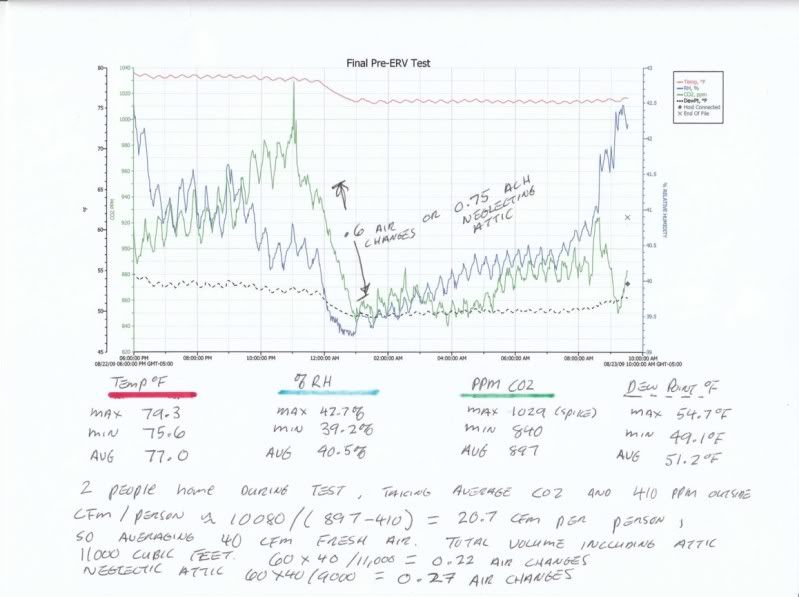 Final Pre-ERV Test
Temp, °F
RH, %
CO2, ppm
DewPt, °F
Host Connected
End Of File
80
75
70
65
60
55
50
45
°F
1040
1020
1000
980
960
940
920
900
880
860
840
820
CO2, PPM
43
42.5
42
41.5
41
40.5
40
39.5
39
% RELATIVE HUMIDITY
.6 AIR CHANGES OR 0.75 ACH NEGLECTING ATTIC
06:00:00 PM 08:00:00 PM 10:00:00 PM 12:00:00 AM 02:00:00 AM 04:00:00 AM 06:00:00 AM 08:00:00 AM 10:00:00 AM
08/22/09 06:00:00 PM GMT-05:00 08/23/09 10:00:00 AM GMT-05:00
TEMP °F % RH PPM CO2 DEW POINT °F
MAX 79.3 MAX 42.7% MAX 1029 (SPIKE) MAX 54.7°F
MIN 75.6 MIN 39.2% MIN 840 MIN 49.1°F
AVG 77.0 AVG 40.5% AVG 897 AVG 51.2°F
2 PEOPLE HOME DURING TEST, TAKING AVERAGE CO2 AND 410 PPM OUTSIDE
CFM / PERSON ≈ 10080/(897-410) = 20.7 CFM PER PERSON,
SO AVERAGING 40 CFM FRESH AIR. TOTAL VOLUME INCLUDING ATTIC
11000 CUBIC FEET. 60 X 40 /11,000 = 0.22 AIR CHANGES
NEGLECTIC ATTIC 60X40/9000 = 0.27 AIR CHANGES